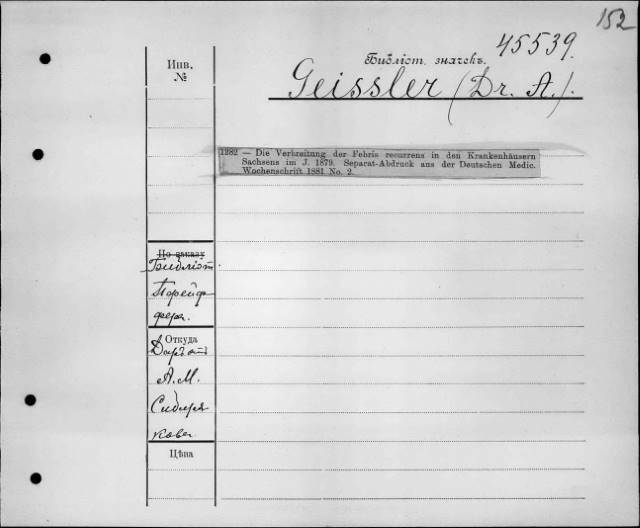 152
45539.
Библіот. значекъ.
Инв.
№
Geissler (Dr. A.).
1282 — Die Verbreitung der Febris recurrens in den Krankenhäusern
Sachsens im J. 1879. Separat-Abdruck aus der Deutschen Medic.
Wochenschrift 1881 No. 2.
По заказу
Библіот.
Порейф-
фера.
Откуда
Даръ
А.М.
Сибиря
кова
Цѣна